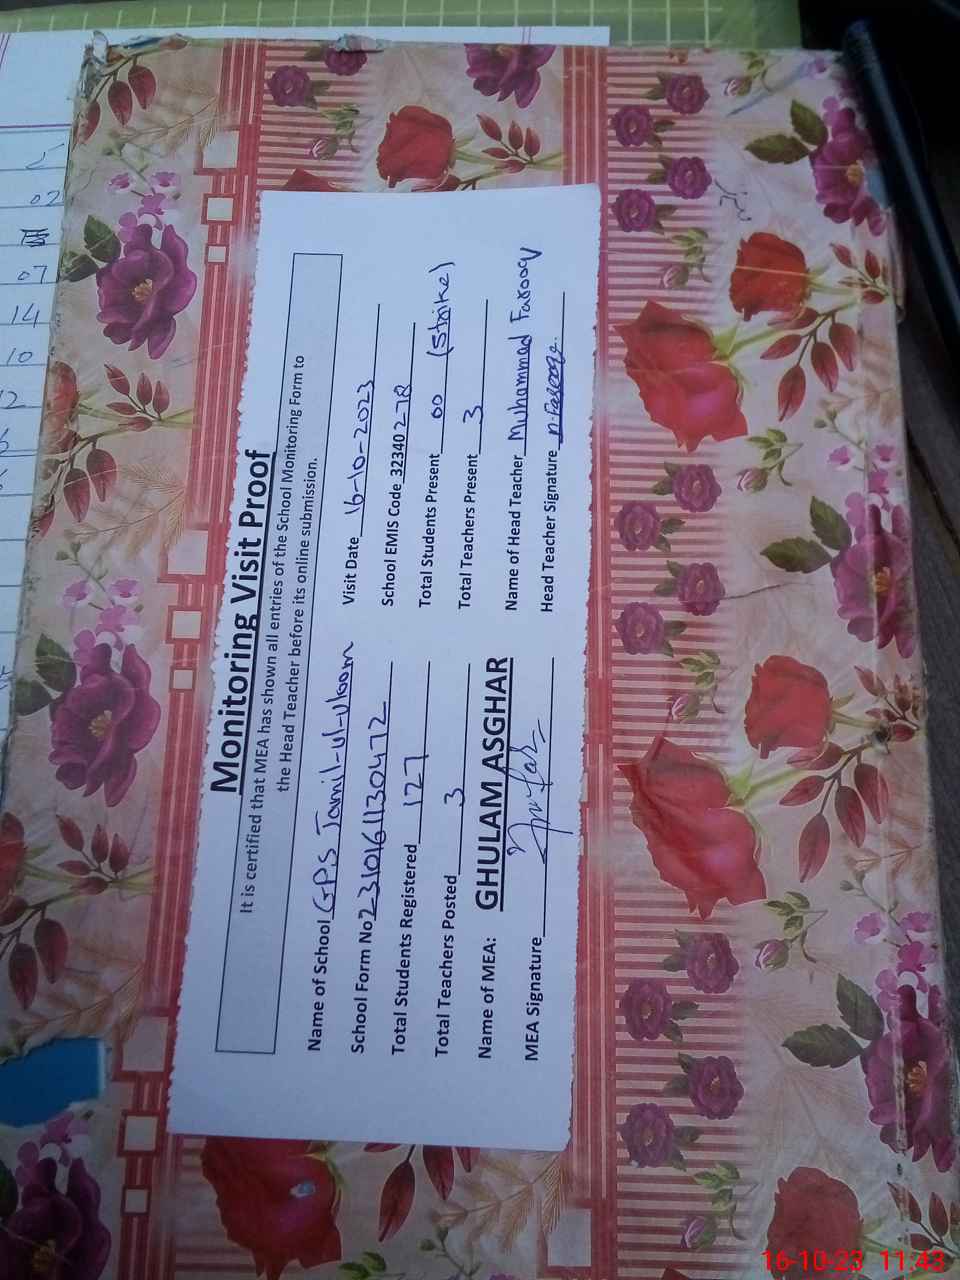 Monitoring Visit Proof
It is certified that MEA has shown all entries of the School Monitoring Form to
the Head Teacher before its online submission.
Name of School GPS Jamil-ul-uloom Visit Date 16-10-2023
School Form No 2310161130472 School EMIS Code 32340 278
Total Students Registered 127 Total Students Present 00 (Strike)
Total Teachers Posted 3 Total Teachers Present 3
Name of MEA: GHULAM ASGHAR Name of Head Teacher Muhammad Farooq
MEA Signature Head Teacher Signature M.Farooq
02
07
14
10
12
16-10-23 11:43